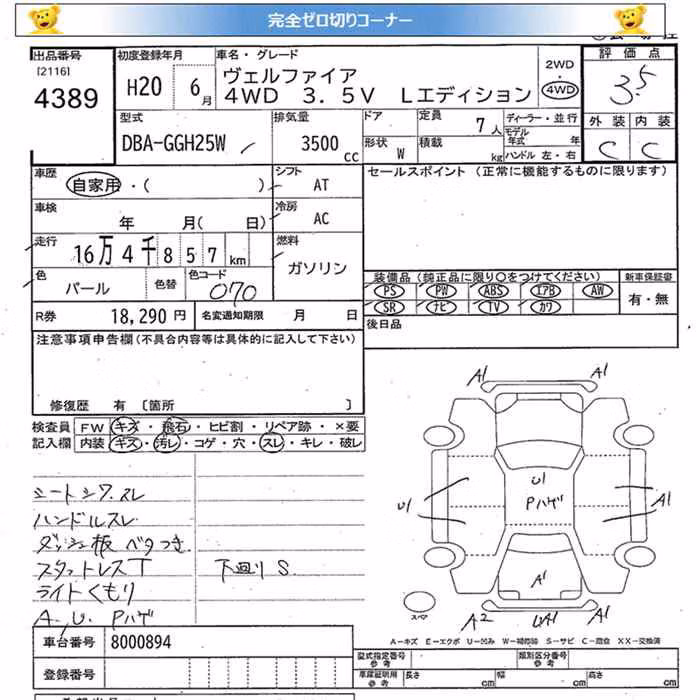 完全ゼロ切りコーナー
出品番号
[2116]
4389
初度登録年月
H20 6月
車名・グレード
ヴェルファイア
4WD 3.5V Lエディション
2WD
・
4WD
評価点
3.5
外装 内装
C C
型式
DBA-GGH25W
排気量
3500
cc
ドア
形状
W
定員
7人
積載
kg
ディーラー・並行
モデル
年式 年
ハンドル 左・右
車歴
自家用・( )
シフト
AT
車検
年 月( 日)
冷房
AC
走行
16万4千857km
燃料
ガソリン
色
パール
色替
色コード
070
R券
18,290円
名変通知期限 月 日
セールスポイント (正常に機能するものに限ります)
装備品(純正品に限り○をつけてください)
PS PW ABS エアB AW
SR ナビ TV カワ
新車保証書
有・無
後日品
注意事項申告欄(不具合内容等は具体的に記入して下さい)
修復歴 有 〔箇所 〕
検査員
記入欄
FW キズ・飛石・ヒビ割・リペア跡・×要
内装 キズ・汚レ・コゲ・穴・スレ・キレ・破レ
シートシワ、スレ
ハンドルスレ
ダッシュ板 ベタつき
スタットレスT
下廻り S
ライトくもり
A、U Pハゲ
A1 A1
U1
U1
Pハゲ
A1
A1
A2 UA1 A1
スペア
A-キズ E-エクボ U-凹み W-補修跡 S-サビ C-腐食 XX-交換済
車台番号
8000894
登録番号
型式指定番号
参考
類別区分番号
参考
車庫証明用
参考
長さ cm
幅 cm
高さ cm